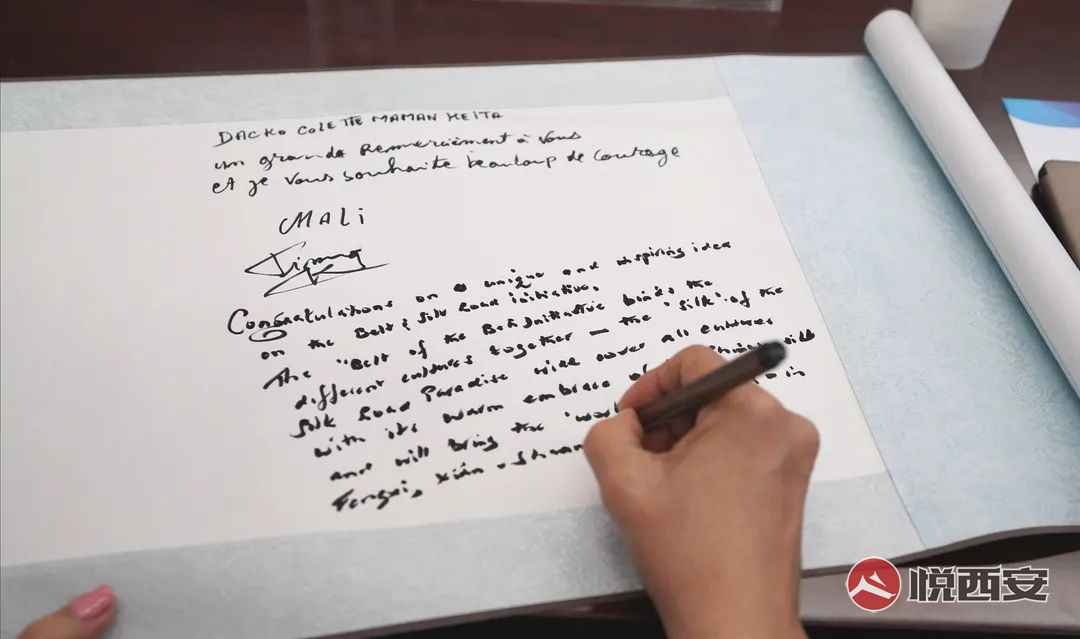 DACKO COLETTE MAMAN KEITA
un grande Remerciement à vous
et je vous souhaite beaucoup de courage
MALI
Congratulations on a unique and inspiring idea
on the Belt & Silk Road initiative.
The "Belt of the Belt Initiative binds the
different cultures together — the "silk" of the
Silk Road Paradise will cover all cultures
with its warm embrace of
and will bring the in
Fengxi, Xián -
悦西安